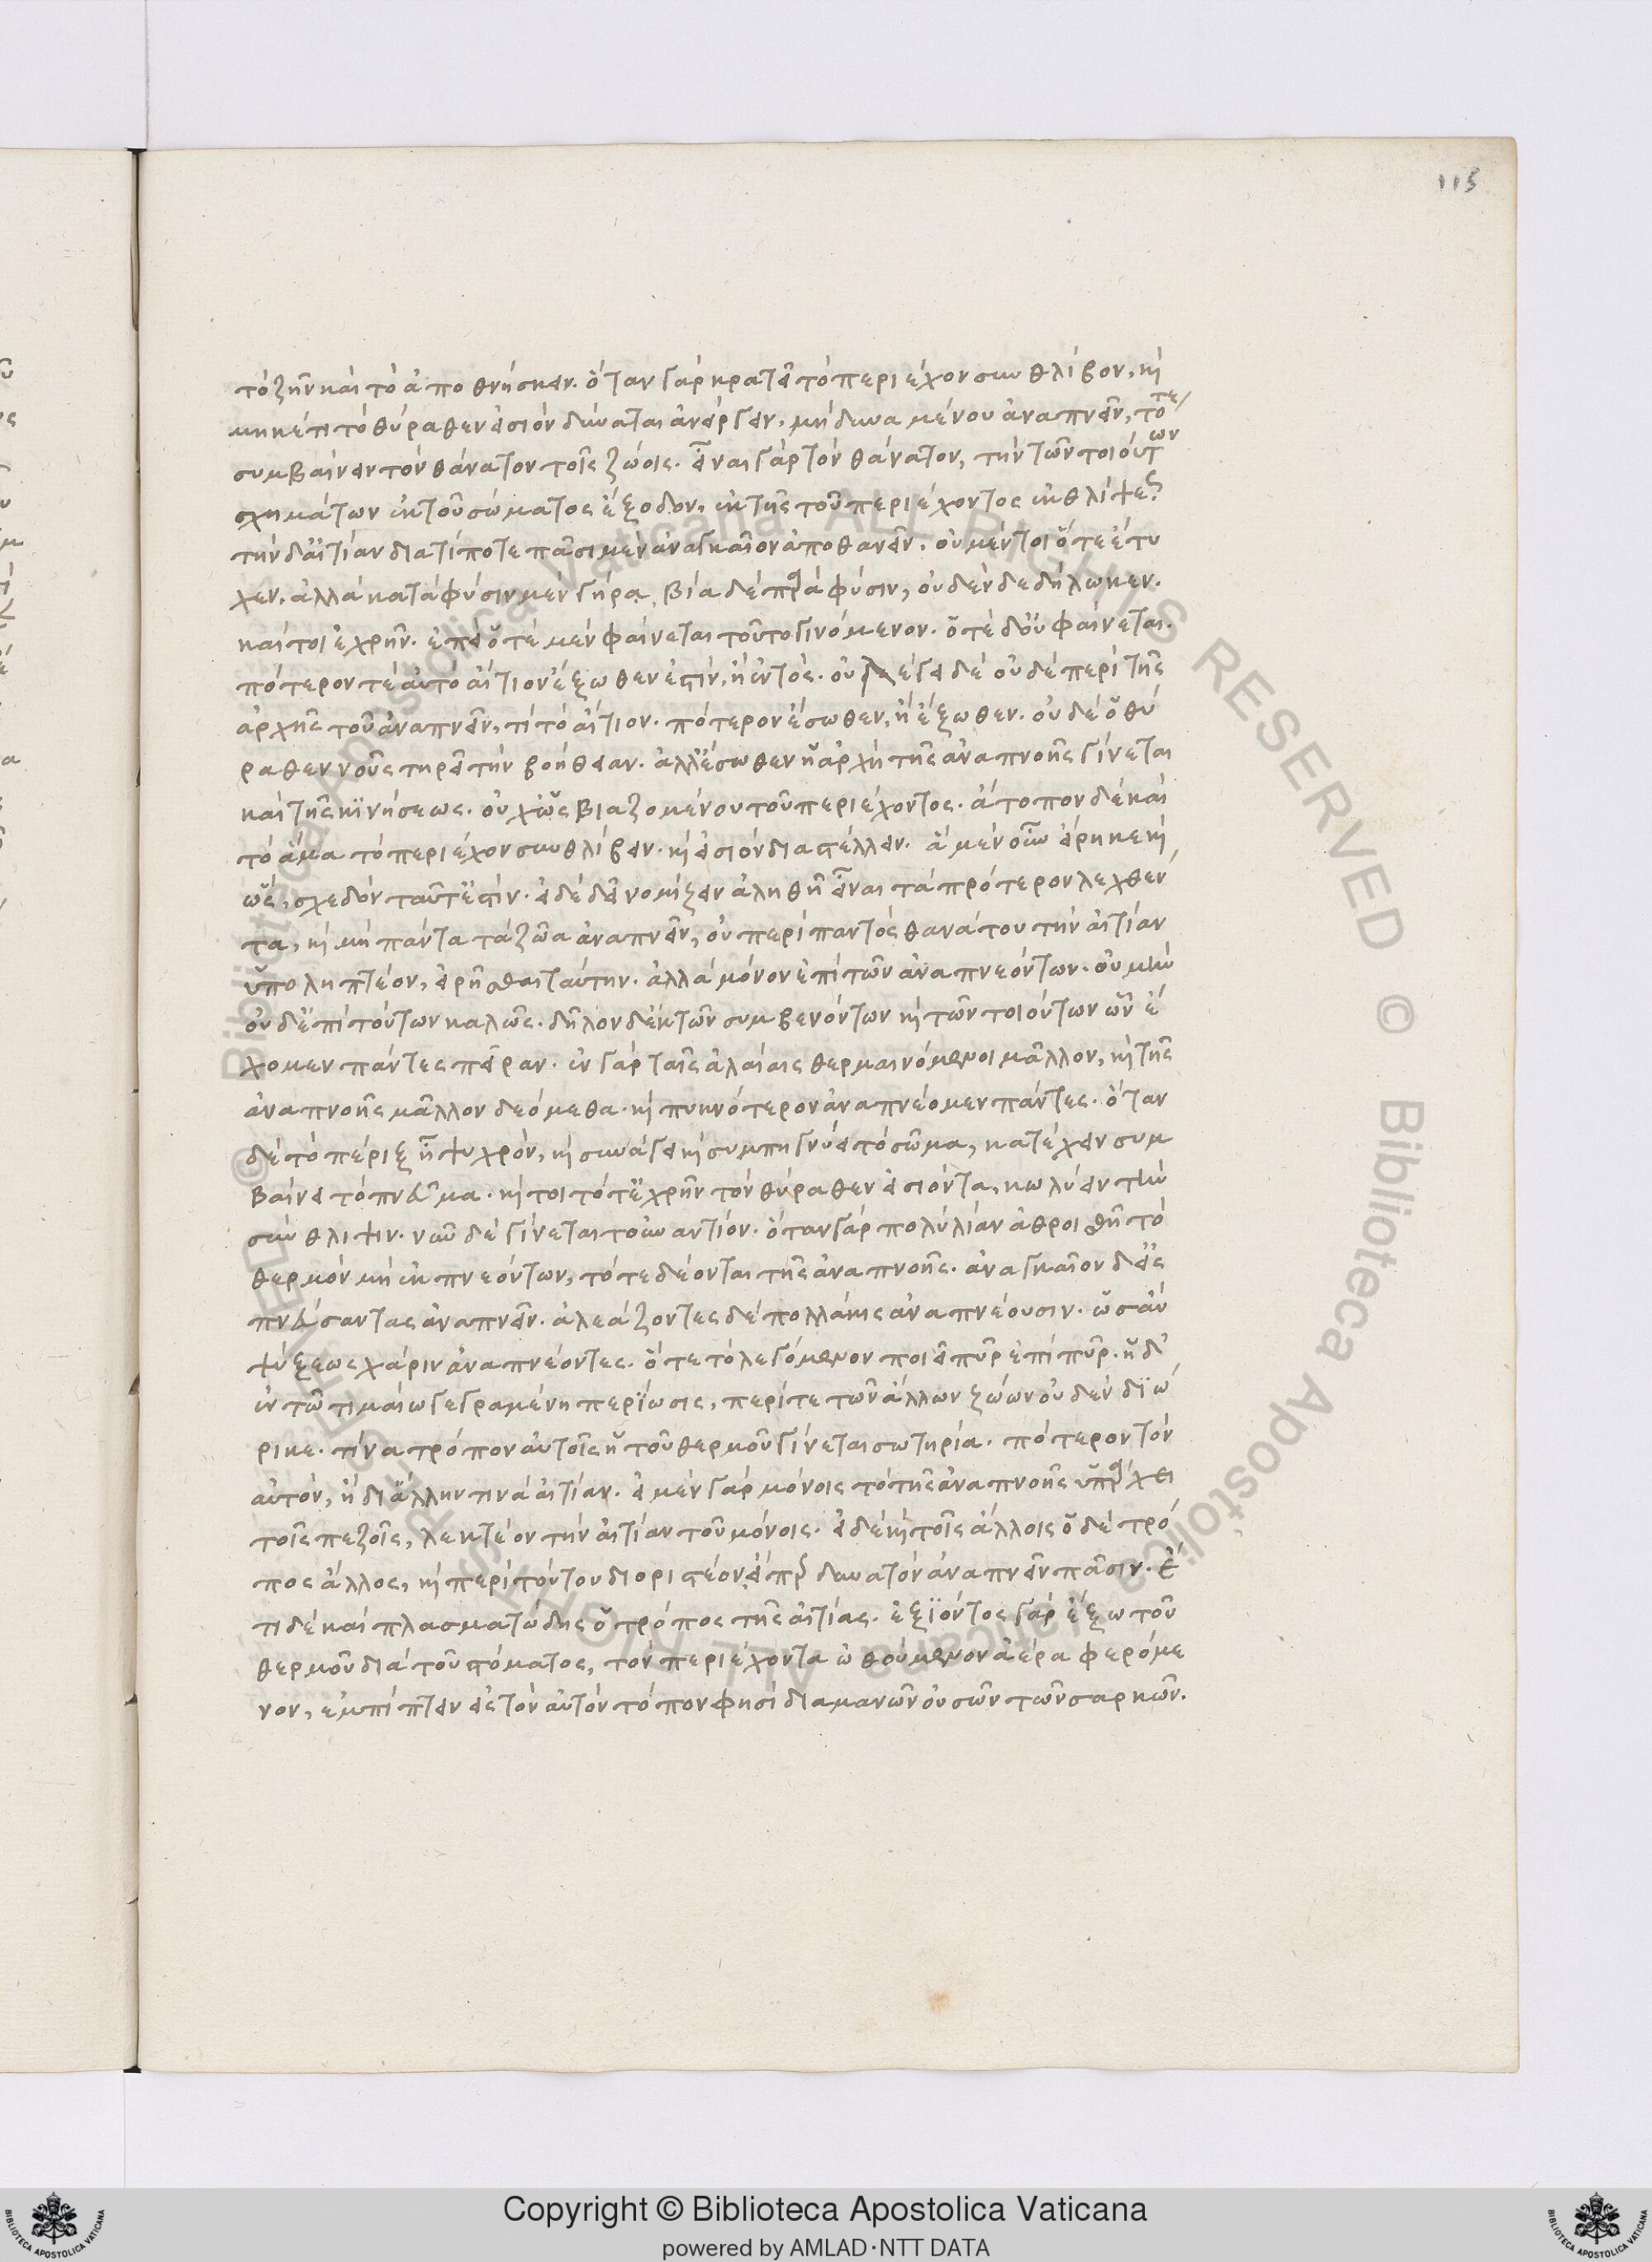 115
τὸ ζῆν καὶ τὸ ἀποθνήσκειν. ὅταν γὰρ κρατεῖ τὸ περιέχον συνθλίβον, κὶ
μηκέτι τὸ θύραθεν εἰσιὸν δύναται ἀνείργειν, μὴ δυναμένου ἀναπνεῖν, τότε
συμβαίνειν τὸν θάνατον τοῖς ζώοις. εἶναι γὰρ τὸν θάνατον, τὴν τῶν τοιούτων
σχημάτων ἐκ τοῦ σώματος ἔξοδον, ἐκ τῆς τοῦ περιέχοντος ἐκθλίψεως
τὴν δ' αἰτίαν διατί ποτε πᾶσι μὲν ἀναγκαῖον ἀποθανεῖν. οὐ μέντοι ὅτε ἔτυ
χεν. ἀλλὰ κατὰ φύσιν μὲν γήρᾳ, βίᾳ δὲ παρὰ φύσιν, οὐδὲν δεδήλωκεν.
καίτοι ἐχρῆν. ἐπεὶ ὁτὲ μὲν φαίνεται τοῦτο γινόμενον. ὁτὲ δ' οὐ φαίνεται.
πότερον τὲ αὐτὸ αἴτιον ἔξωθέν ἐστιν, ἢ ἐντός. οὐ λέγει δὲ οὐδὲ περὶ τῆς
ἀρχῆς τοῦ ἀναπνεῖν, τί τὸ αἴτιον. πότερον ἔσωθεν, ἢ ἔξωθεν. οὐ δὲ ὁ θύ
ραθεν νοῦς τηρεῖ τὴν βοήθειαν. ἀλλ' ἔσωθεν ἡ ἀρχὴ τῆς ἀναπνοῆς γίνεται
καὶ τῆς κινήσεως. οὐχ ὡς βιαζομένου τοῦ περιέχοντος. ἄτοπον δὲ καὶ
τὸ ἅμα τὸ περιέχον συνθλίβειν. κὶ εἰσιὸν διαστέλλειν. ἃ μὲν οὖν εἴρηκε κὶ
ὡς, σχεδὸν ταῦτ' ἐστίν. εἰ δὲ δεῖ νομίζειν ἀληθῆ εἶναι τὰ πρότερον λεχθέν
τα, κὶ μὴ πάντα τὰ ζῶα ἀναπνεῖν, οὐ περὶ παντὸς θανάτου τὴν αἰτίαν
ὑποληπτέον, εἰρῆσθαι ταύτην. ἀλλὰ μόνον ἐπὶ τῶν ἀναπνεόντων. οὐ μὴν
οὐδ' ἐπὶ τούτων καλῶς. δῆλον δ' ἐκ τῶν συμβενόντων κὶ τῶν τοιούτων ὧν ἔ
χομεν πάντες πεῖραν. ἐν γὰρ ταῖς ἀλαίαις θερμαινόμενοι μᾶλλον, κὶ τῆς
ἀναπνοῆς μᾶλλον δεόμεθα. κὶ πυκνότερον ἀναπνέομεν πάντες. ὅταν
δὲ τὸ πέριξ ἦ ψυχρὸν, κὶ συνάγει κὶ συμπηγνύει τὸ σῶμα, κατέχειν συμ
βαίνει τὸ πνεῦμα. κὶ τοι τότ' ἐχρῆν τὸν θύραθεν εἰσιόντα, κωλύειν τὴν
σύνθλιψιν. νῦν δὲ γίνεται τοὐναντίον. ὅταν γὰρ πολὺ λίαν ἀθροισθῆ τὸ
θερμὸν μὴ ἐκπνεόντων, τότε δέονται τῆς ἀναπνοῆς. ἀναγκαῖον δ' εἰς
πνεύσαντας ἀναπνεῖν. ἀλεάζοντες δὲ πολλάκις ἀναπνέουσιν. ὡς ἀν
ψύξεως χάριν ἀναπνέοντες. ὅτε τὸ λεγόμενον ποιεῖ πῦρ ἐπὶ πῦρ. ἡ δ'
ἐν τῶ τιμαίω γεγραμένη περίωσις, περί τε τῶν ἄλλων ζώων οὐδὲν διώ
ρικε. τίνα τρόπον αὐτοῖς ἡ τοῦ θερμοῦ γίνεται σωτηρία. πότερον τὸν
αὐτὸν, ἢ δι' ἄλλην τινὰ αἰτίαν. εἰ μὲν γὰρ μόνοις τὸ τῆς ἀναπνοῆς ὑπάρχει
τοῖς πεζοῖς, λεκτέον τὴν αἰτίαν τοῦ μόνοις. εἰ δὲ κὶ τοῖς ἄλλοις ὁ δὲ τρό
πος ἄλλος, κὶ περὶ τούτου διοριστέον, εἴπερ δυνατὸν ἀναπνεῖν πᾶσιν. ἔ
τι δὲ καὶ πλασματώδης ὁ τρόπος τῆς αἰτίας. ἐξιόντος γὰρ ἔξω τοῦ
θερμοῦ διὰ τοῦ στόματος, τὸν περιέχοντα ὠθούμενον ἀέρα φερόμε
νον, ἐμπίπτειν εἰς τὸν αὐτὸν τόπον φησὶ διαμανῶν οὐσῶν τῶν σαρκῶν.
© Biblioteca Apostolica Vaticana ALL RIGHTS RESERVED
Copyright © Biblioteca Apostolica Vaticana
powered by AMLAD·NTT DATA
BIBLIOTECA APOSTOLICA VATICANA
BIBLIOTECA APOSTOLICA VATICANA